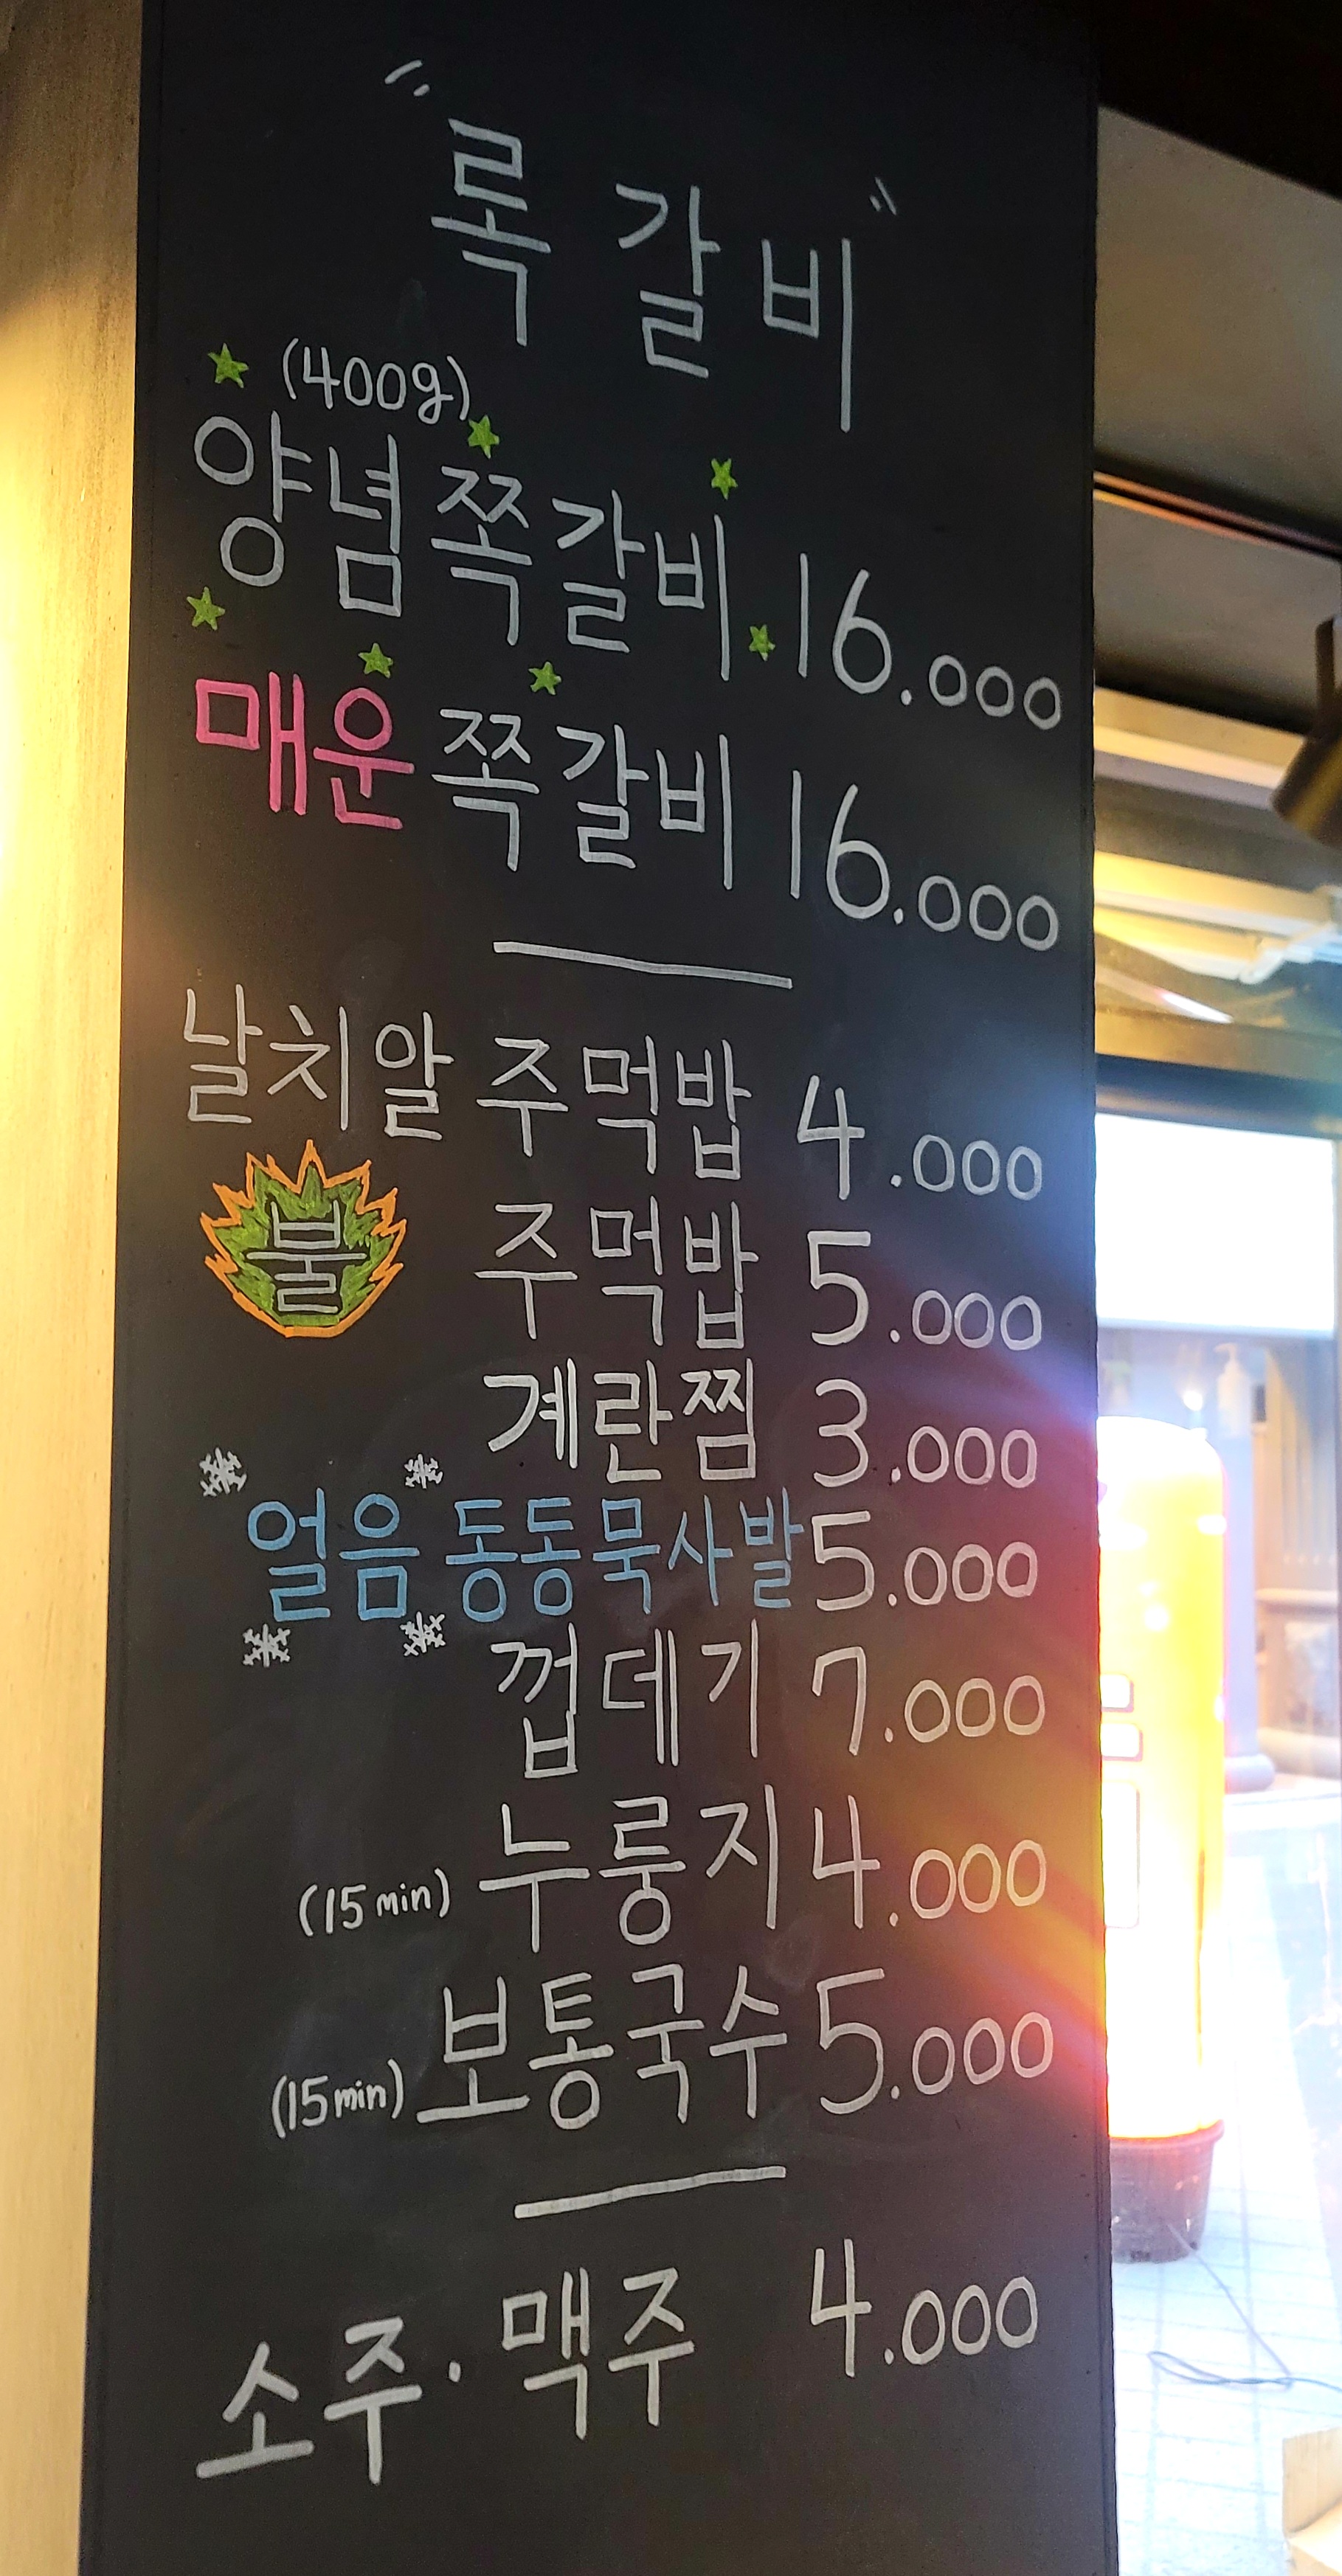 "록갈비"
(400g)
양념쪽갈비 16.000
매운쪽갈비 16.000
날치알 주먹밥 4.000
불 주먹밥 5.000
계란찜 3.000
얼음 동동묵사발 5.000
껍데기 7.000
(15min) 누룽지 4.000
(15min) 보통국수 5.000
소주·맥주 4.000